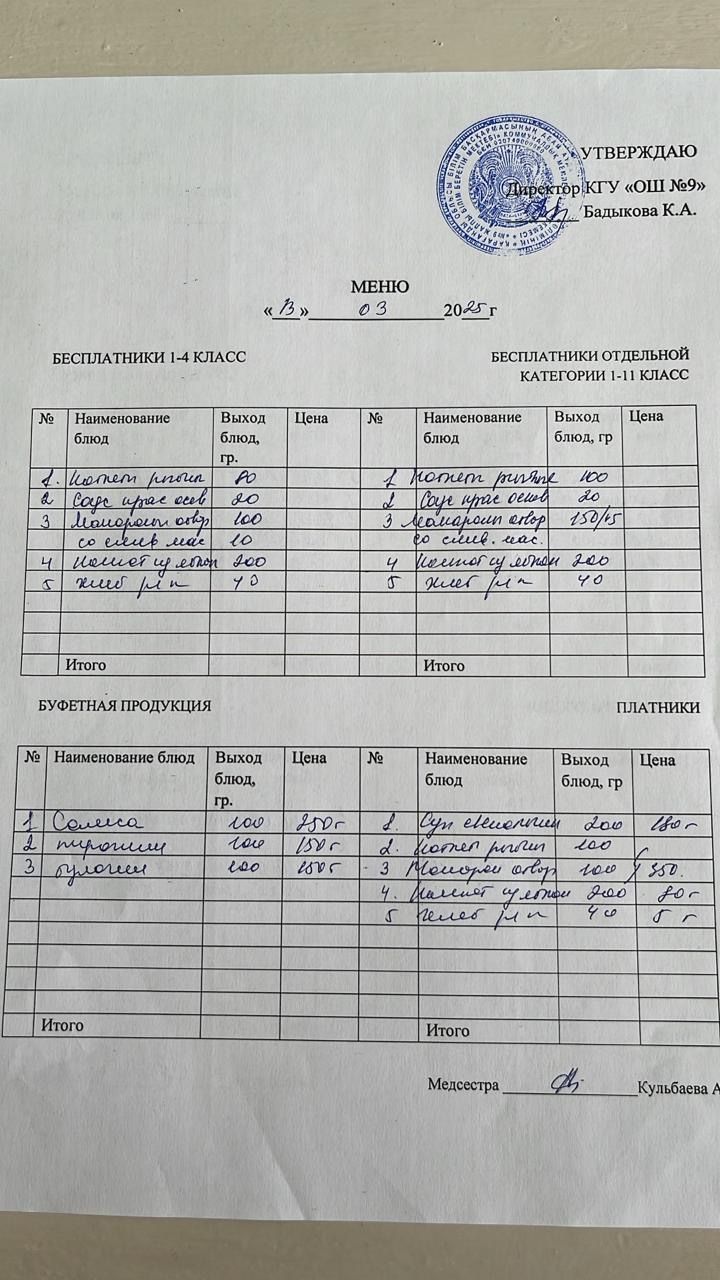 УТВЕРЖДАЮ
Директор КГУ «ОШ №9»
Бадыкова К.А.
МЕНЮ
«13» 03 2025 г
БЕСПЛАТНИКИ 1-4 КЛАСС
БЕСПЛАТНИКИ ОТДЕЛЬНОЙ
КАТЕГОРИИ 1-11 КЛАСС
№ Наименование блюд Выход блюд, гр. Цена № Наименование блюд Выход блюд, гр Цена
1. Котлет рыбн 80 1 Котлет рыбные 100
2 Соус крас основ 20 2 Соус крас основ 20
3 Макароны отвар 100 3 Макароны отвар 150/15
со слив мас 10 со слив. мас.
4 Компот 200 4 Компот 200
5 хлеб рж п 40 5 хлеб рж п 40
Итого Итого
БУФЕТНАЯ ПРОДУКЦИЯ
ПЛАТНИКИ
№ Наименование блюд Выход блюд, гр. Цена № Наименование блюд Выход блюд, гр Цена
1 Самса 100 250 г 1. Суп 200 180 г
2 пирожки 100 150 г 2. Котлет рыбн 100
3 булочки 100 150 г 3 Макарон отвар 100 350.
4. Компот 200 80 г
5 хлеб рж п 40 5 г
Итого Итого
Медсестра Кульбаева А